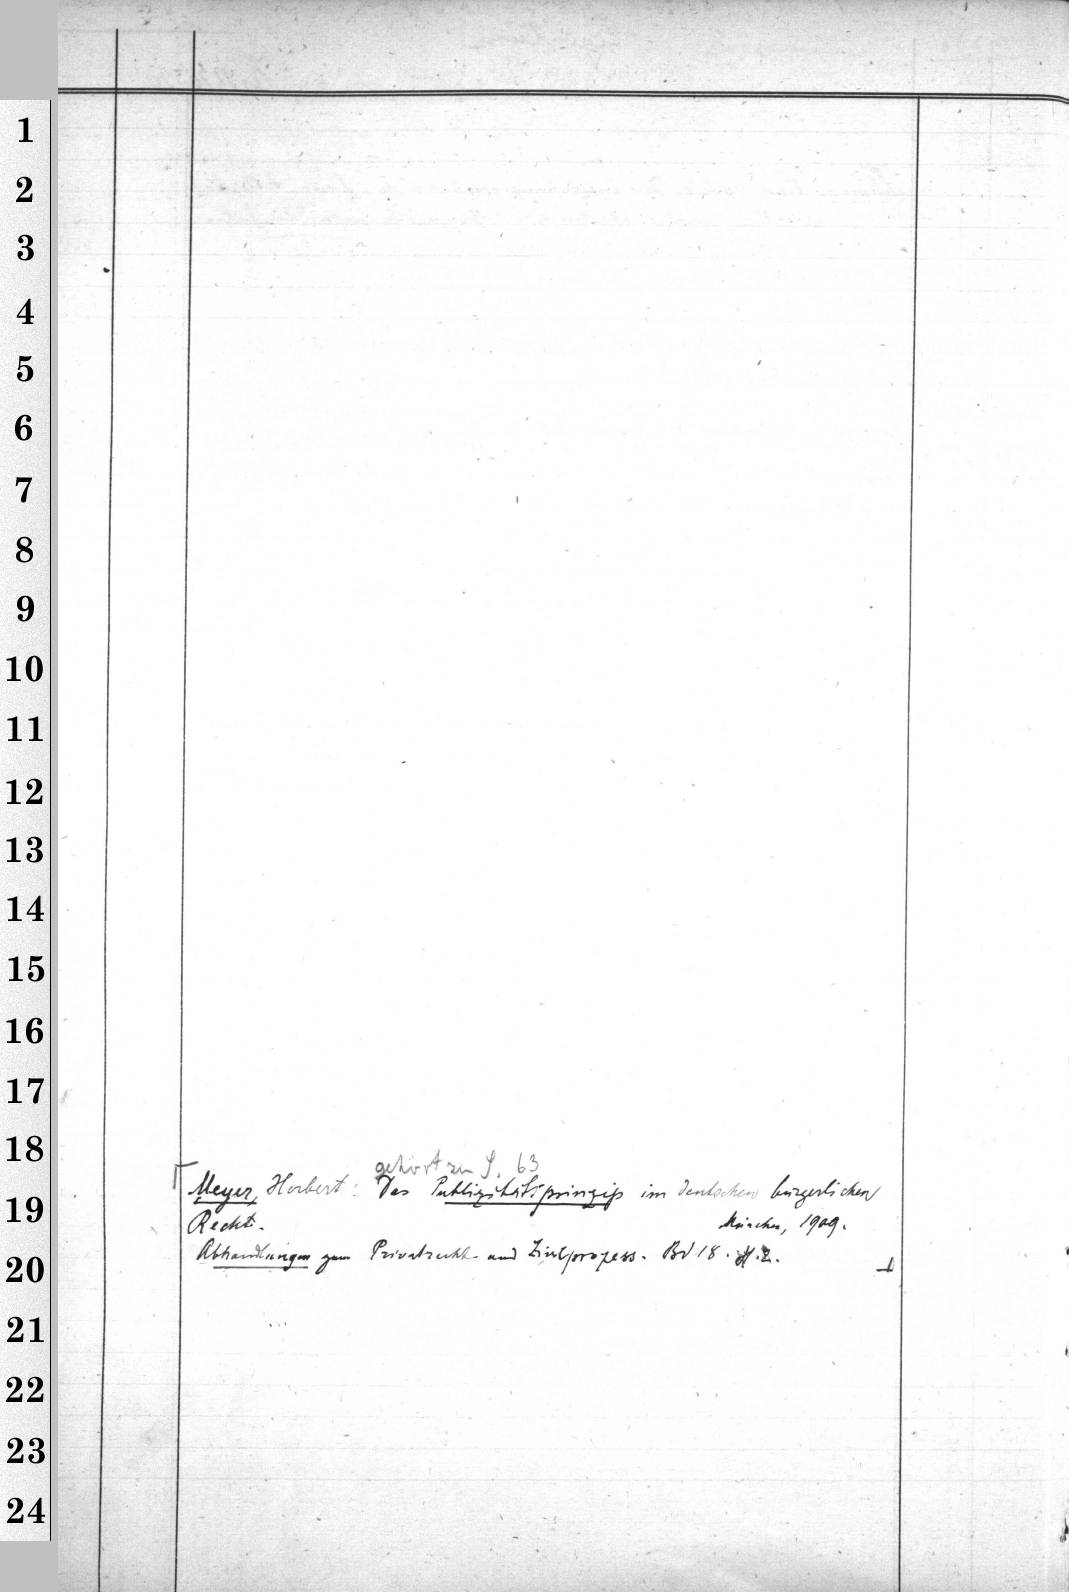 1
2
3
4
5
6
7
8
9
10
11
12
13
14
15
16
17
18
19
20
21
22
23
24
gehört zu S. 63
Meyer, Herbert: Das Publizitätsprinzip im deutschen bürgerlichen
Recht. München, 1909.
Abhandlungen zum Privatrecht und Zivilprozess. Bd 18. H. 2.